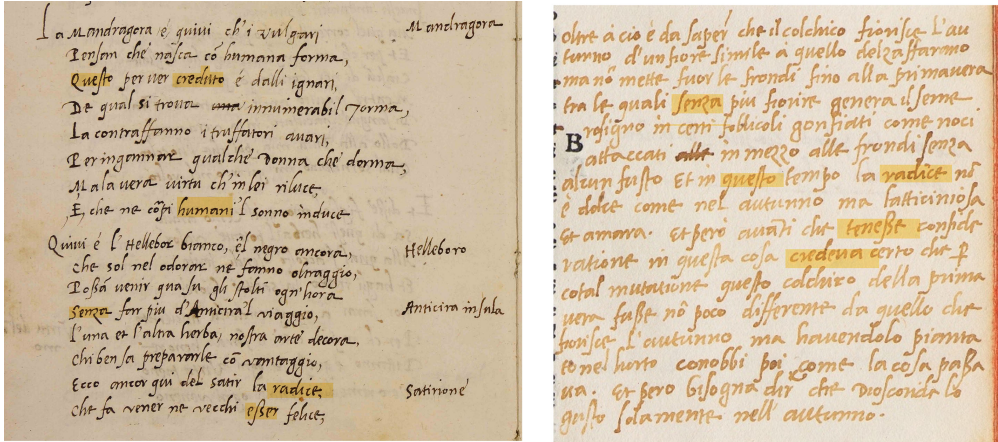 La Mandragora é quivi ch'i vulgari
Mandragora
Pensan che nasca cõ humana forma,
Questo per ver creduto é dalli ignari,
De qual si trova una innumerabil torma,
La contraffanno i truffatori avari,
Per ingannar qualche donna che dorma,
Ma la vera virtu ch'in lei riluce,
E, che ne cõrpi humani 'l sonno induce
Quivi é l'Hellebor bianco, e'l negro ancora,
Helleboro
Che sol nel odorar ne fanno oltraggio,
Possã venir qua su gli stolti ogn'hora
Senza far piu d'Anticira'l viaggio,
Anticira insula
L'una et l'altra herba, nostra arte decora,
Chi ben sa prepararle cõ vantaggio,
Ecco ancor qui del satir la radice,
Satirione
Che fa vener ne vecchi esser felice,
oltre à ciò è da saper che il colchico fiorisce l'au
tunno d'un fiore simile à quello del zaffarano
ma nõ mette fuor le frondi fino alla primavera
tra le quali senza piu fiorire genera il seme
rossigno in certi follicoli gonfiati come noci
B
attaccati alle in mezzo alle frondi senza
alcun fusto Et in questo tempo la radice nõ
è dolce come nel autunno ma fatticiniosa
et amara. Et però avãti che tenesse conside
ratione in questa cosa credeva certo che ꝑ
cotal mutatione questo colchico della prima
vera fusse nõ poco differente da quello che
fiorisce l'autunno ma havendolo pianta
to nel horto conobbi poi come la cosa passa
va. Et però bisogna dir che Dioscoride lo
gusto solamente nell'autunno.